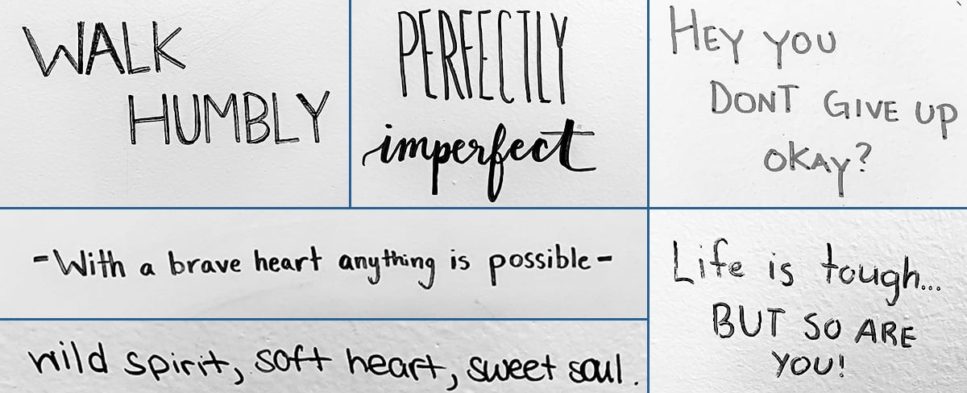 WALK
HUMBLY
PERFECTLY
imperfect
HEY YOU
DONT GIVE UP
OKAY?
-With a brave heart anything is possible-
wild spirit, soft heart, sweet soul.
Life is tough...
BUT SO ARE
YOU!